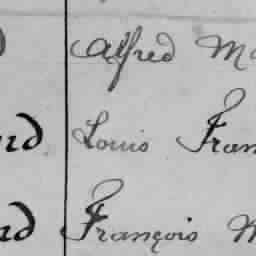 Alfred M
rd Louis Fran
rd François M